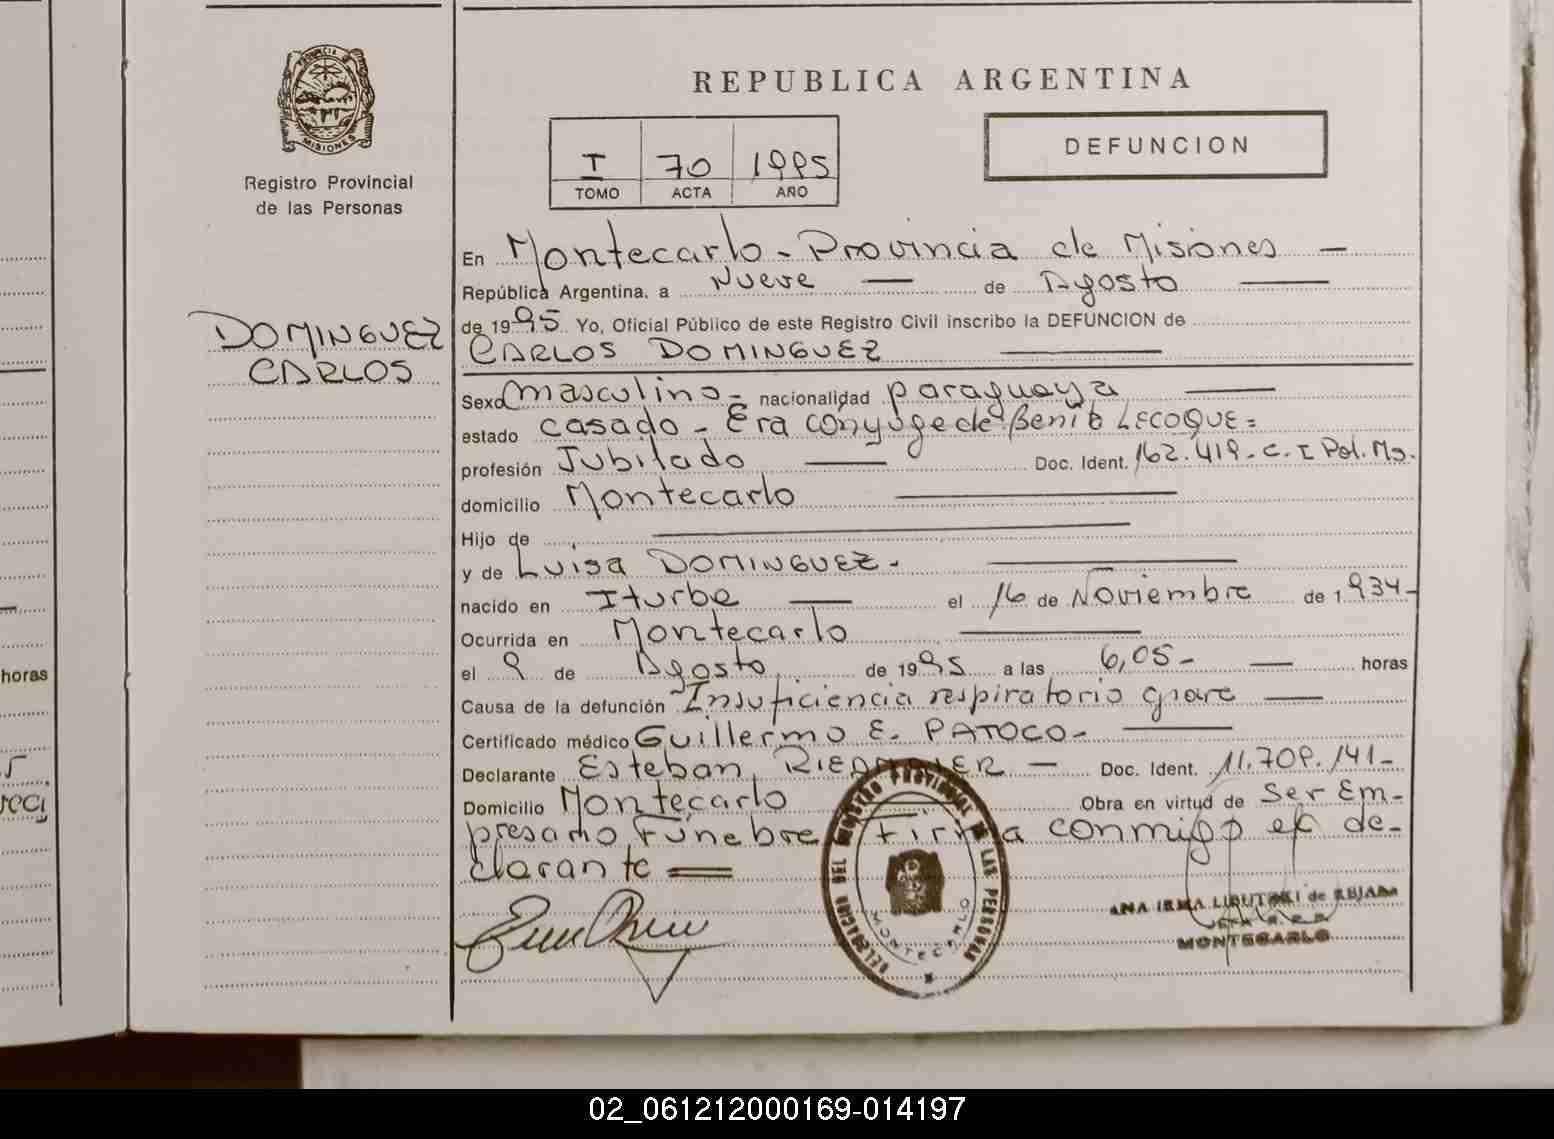 REPUBLICA ARGENTINA
PROVINCIA DE
MISIONES
Registro Provincial
de las Personas
I 70 1995
TOMO ACTA AÑO
DEFUNCION
En Montecarlo - Provincia de Misiones —
República Argentina, a Nueve — de Agosto —
de 1995 Yo, Oficial Público de este Registro Civil inscribo la DEFUNCION de
DOMINGUEZ
CARLOS
CARLOS DOMINGUEZ —
Sexo masculino - nacionalidad paraguaya —
estado casado - Era cónyuge de Benita LECOQUE =
profesión Jubilado — Doc. Ident. 162.419 - C. I Pol. Ms.
domicilio Montecarlo —
Hijo de —
y de Luisa DOMINGUEZ - —
nacido en Iturbe — el 16 de Noviembre de 1.934 -
Ocurrida en Montecarlo —
el 9 de Agosto de 1995 a las 6,05 - — horas
Causa de la defunción Insuficiencia respiratorio grave —
Certificado médico Guillermo E. PATOCO - —
Declarante Esteban — Doc. Ident. 11.709.141 -
Domicilio Montecarlo Obra en virtud de Ser Em-
presario Fúnebre Firma conmigo el de-
clarante =
DELEGACION DEL REGISTRO PROVINCIAL DE LAS PERSONAS
MONTECARLO
ANA IRMA de
MONTECARLO
horas
02_061212000169-014197